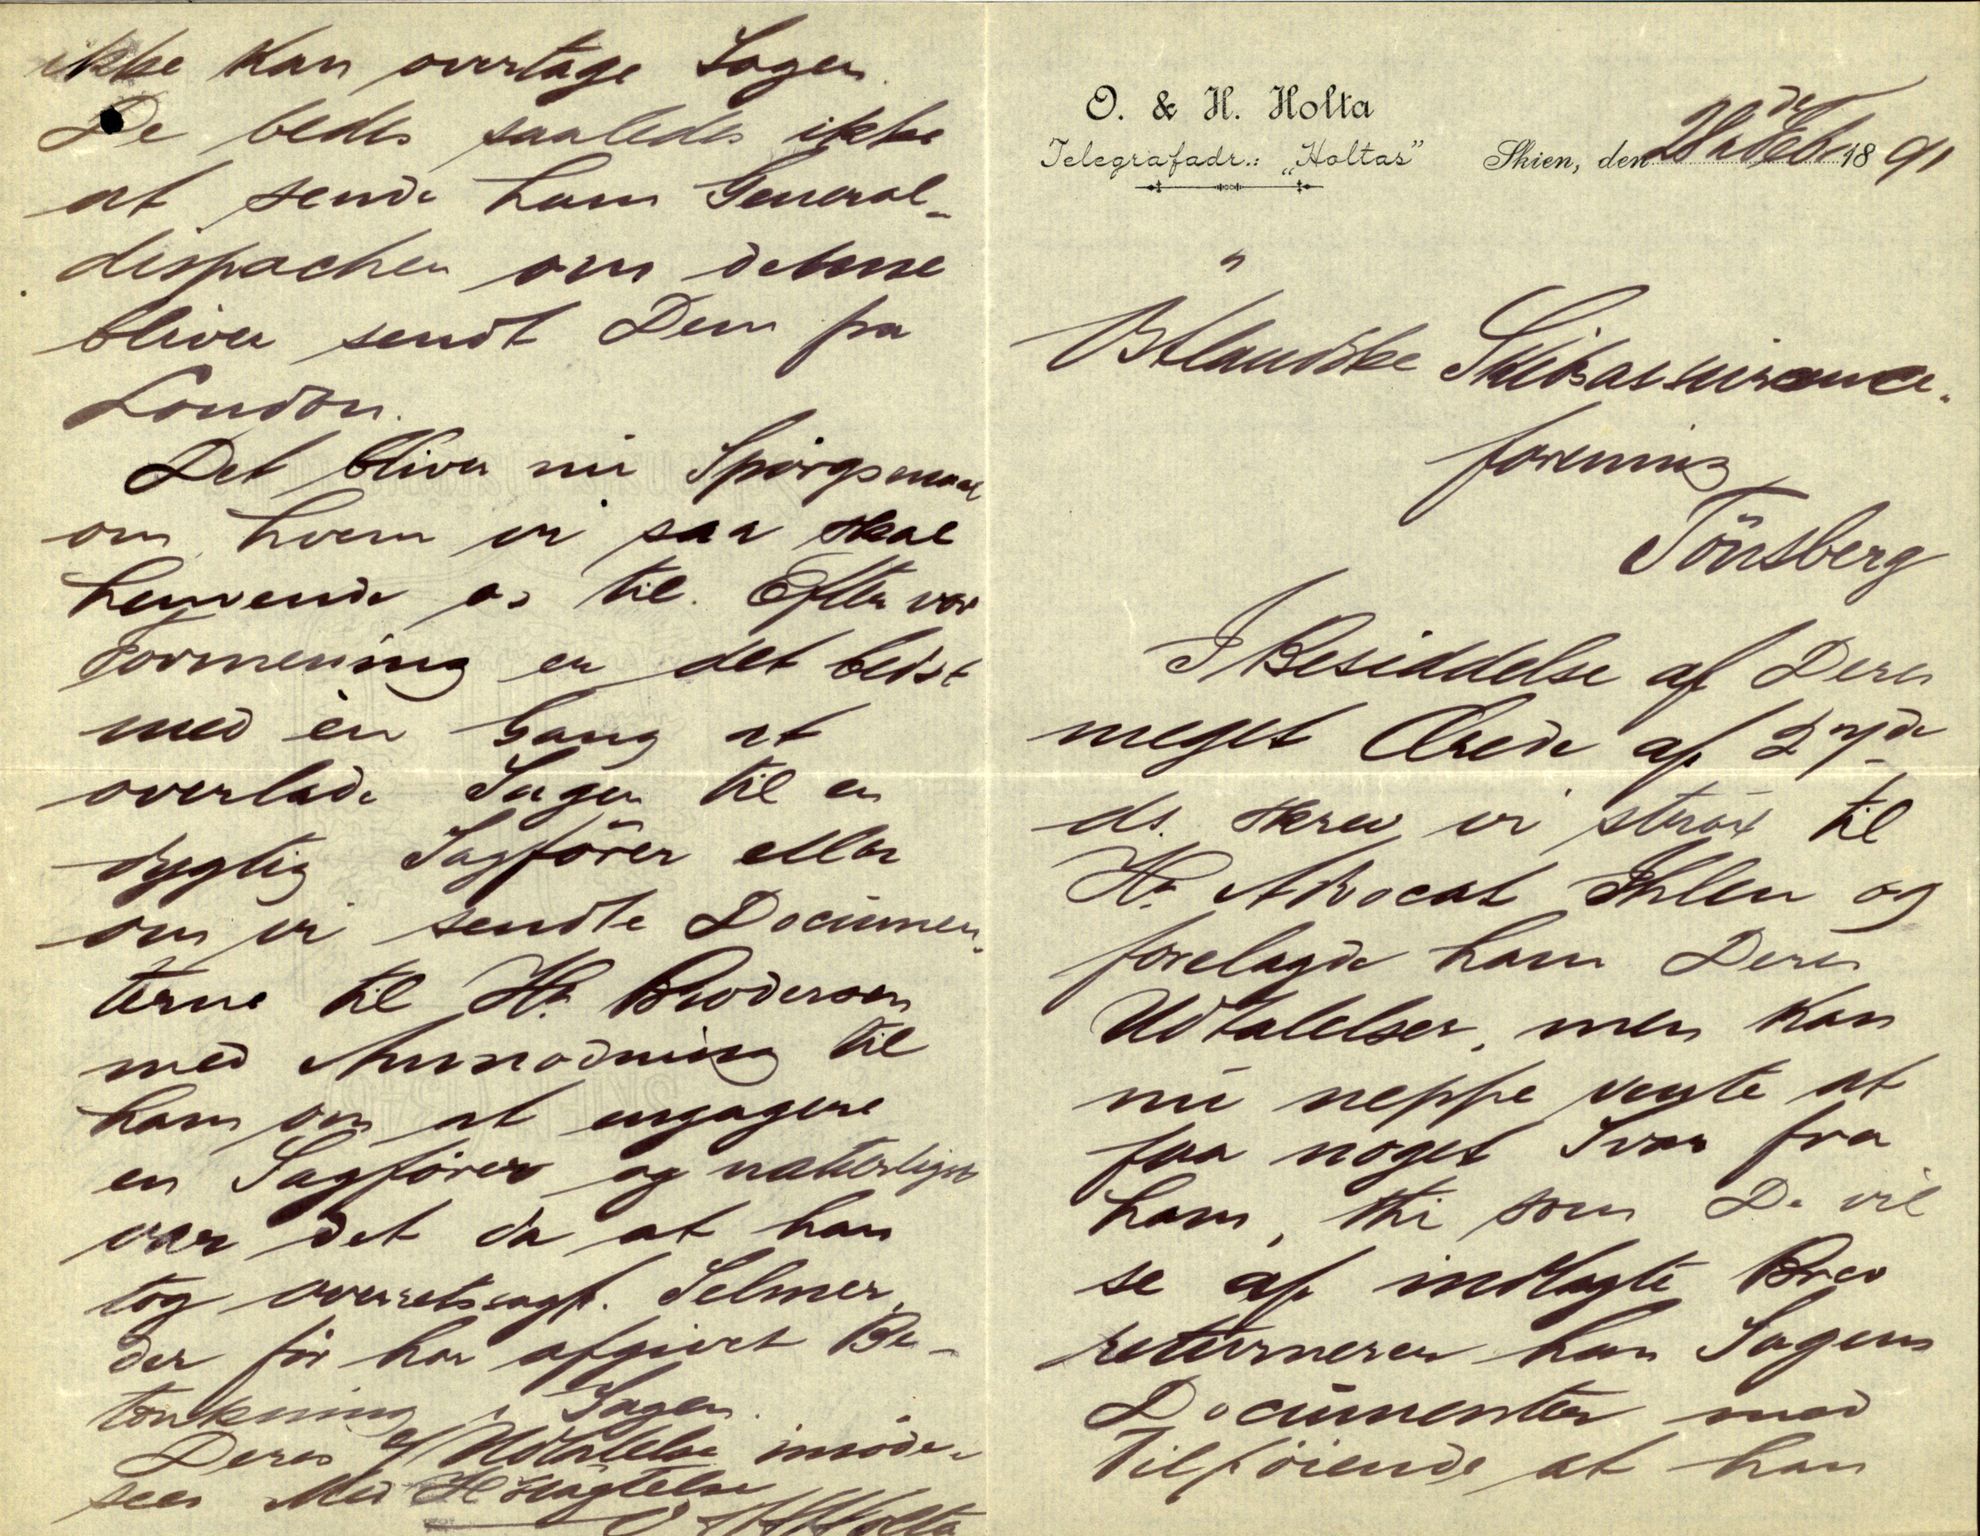 O. & H. Holta
Telegrafadr.: „Holtas"
Skien, den 28de Feb 1891
Østlandske Skibsassurance-
forening
Tönsberg
I Besiddelse af Deres
meget Ærede af 27de
ds. skrev vi strax til
Hr. Advocat Ihlen og
forelagde ham Deres
Udtalelser, men kan
nu neppe vente at
faa noget Svar fra
ham, thi som De vil
se af indlagte Brev
returnerer han Sagens
Documenter med
Tilföiende at han
ikke kan overtage Sagen.
De bedes saaledes ikke
at sende ham General-
dispachen om denne
bliver sendt Dem fra
London.
Det bliver nu Spörgsmaal
om hvem vi saa skal
henvende os til. Efter vor
Formening er det bedst
med èn Gang at
overlade Sagen til en
dygtig Sagförer eller
om vi sendte Documen-
terne til Hr. Brodersen
med Anmodning til
ham om at engagere
en Sagförer og naturligst
var det da at han
tog Overretssagf. Selmer,
der för har afgivet Be-
tænkning i Sagen.
Deres Udtalelse imöde-
sees Med Höiagtelse
O & H Holta